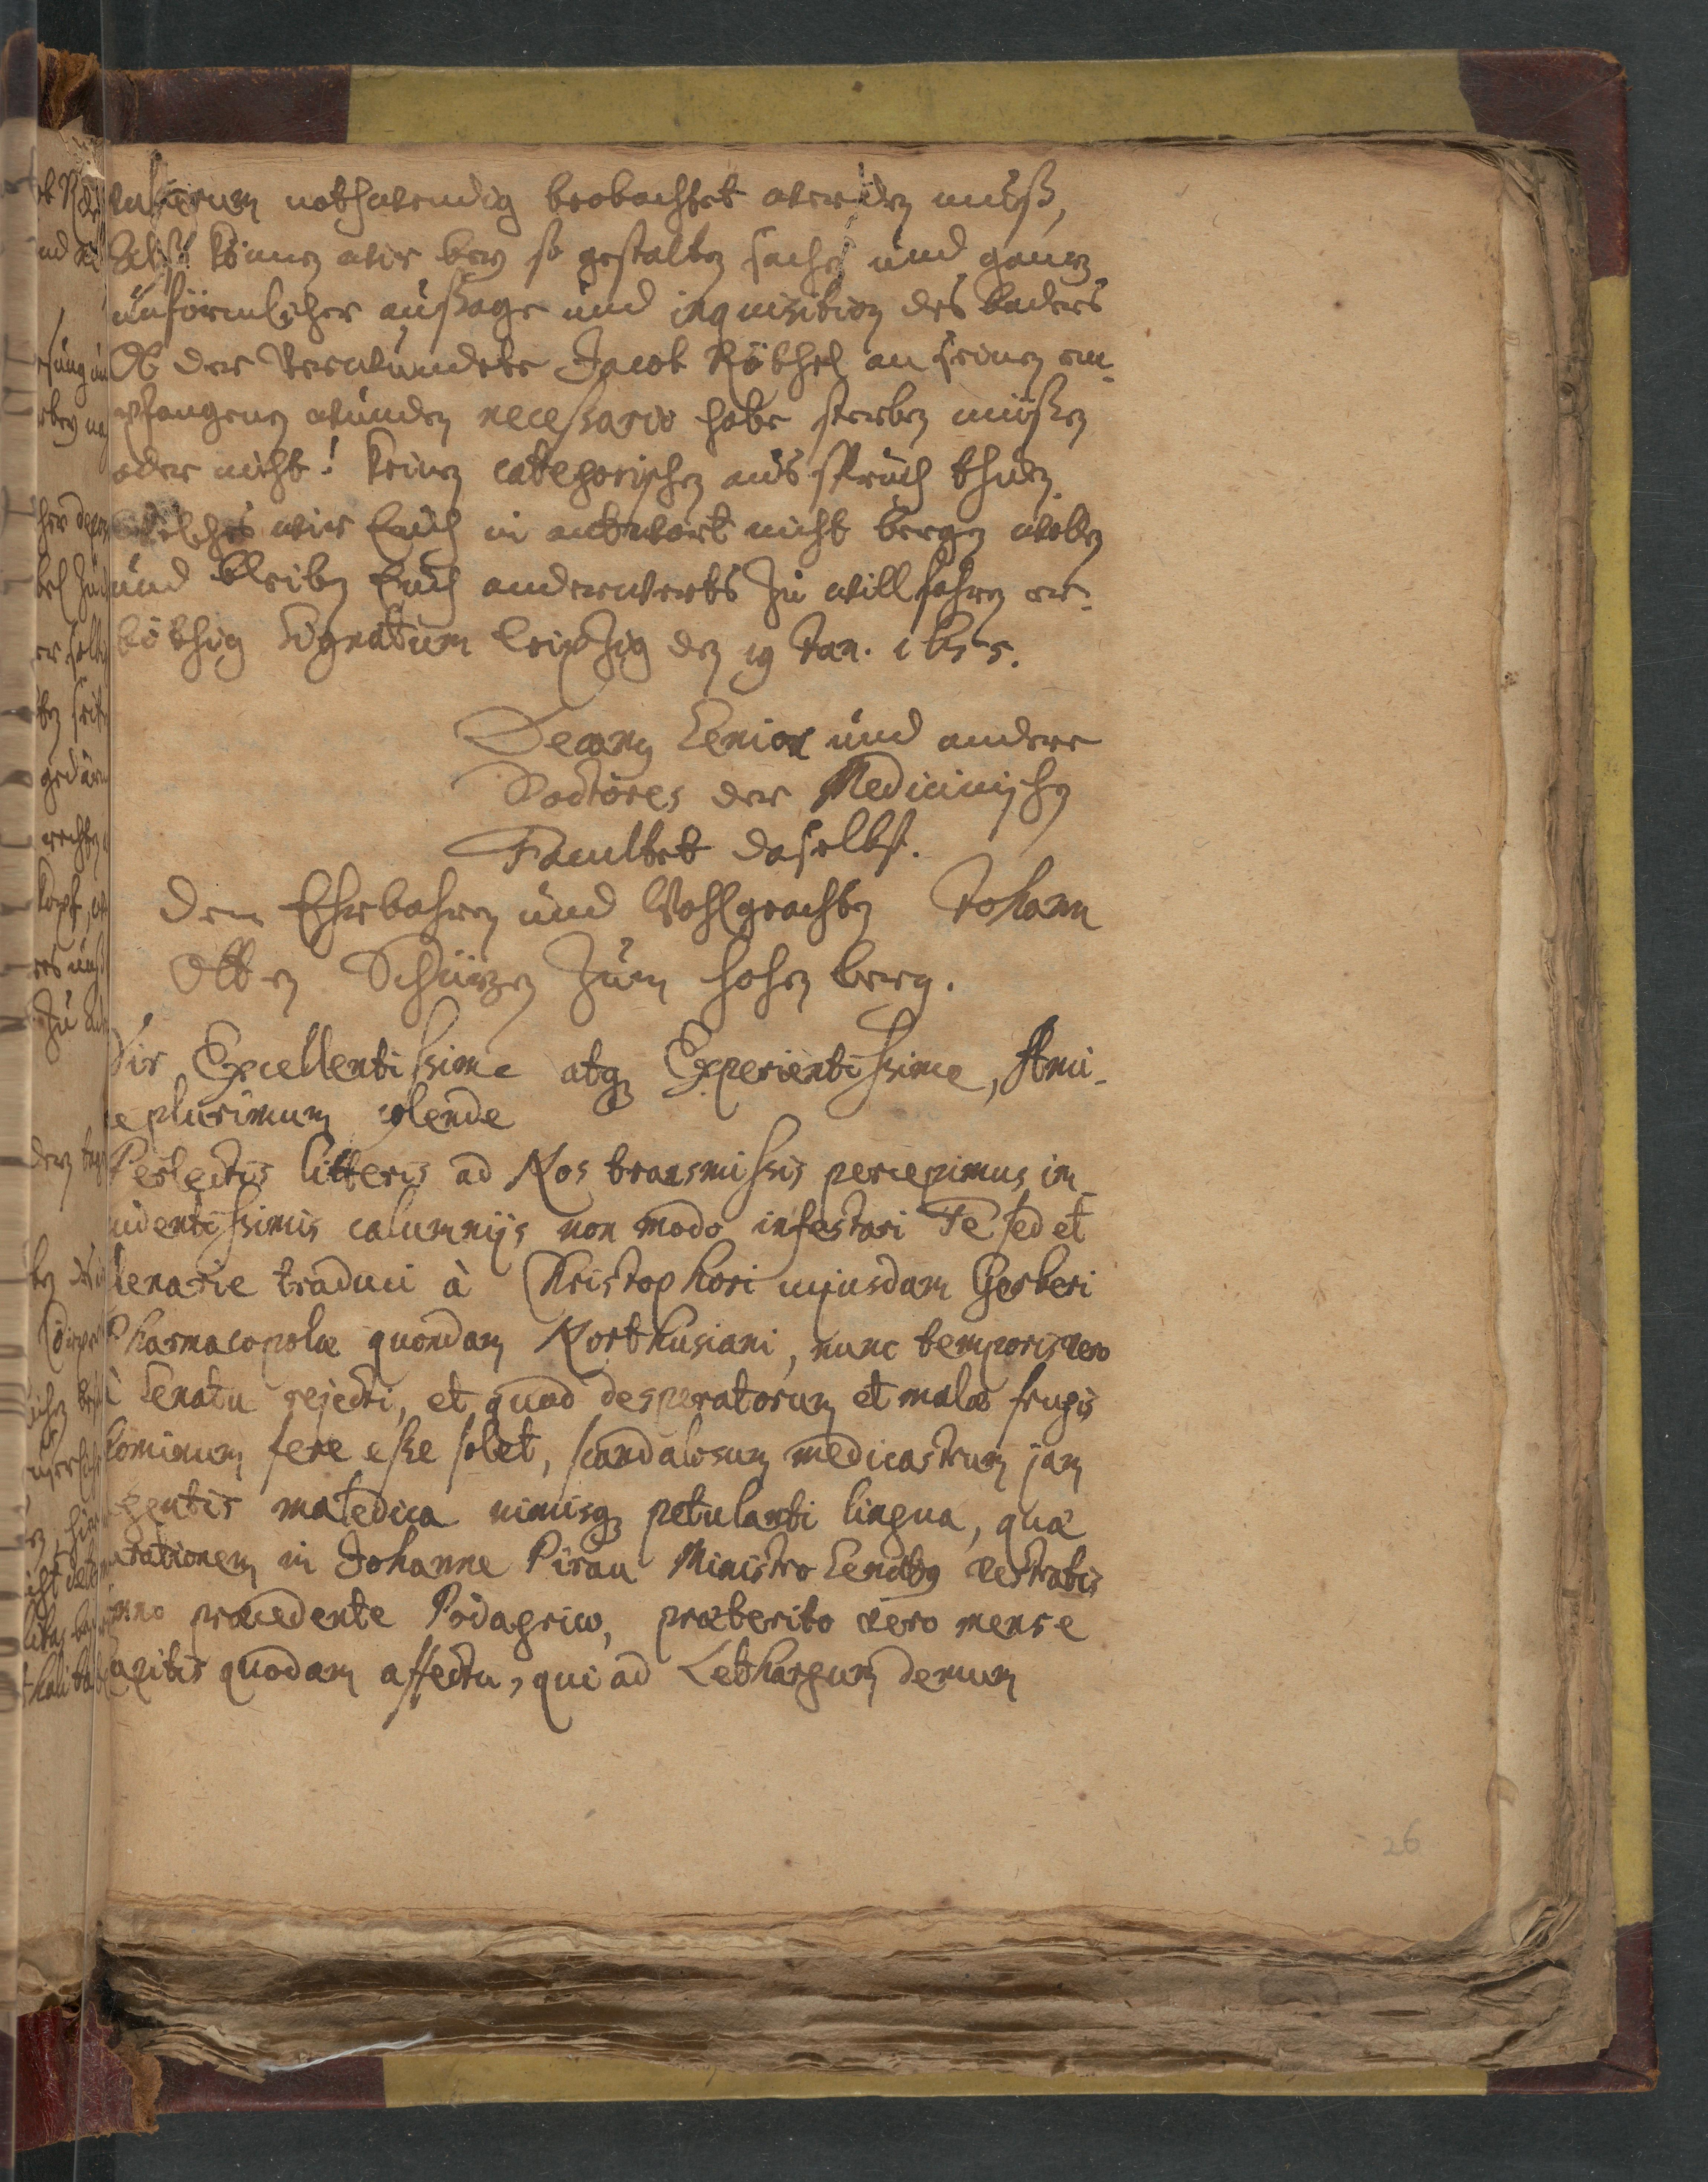 vulnerum nothwendig beobachtet werden muß,
Selbst können wir bey so gestalten sachen und gantz
unförmlicher außsage und inquisition des baders
Ob der Verwundete Jacob Röthel an seinen em-
pfangenen wunden necessario habe sterben müßen
oder nicht! keinen categorischen ausspruch thun,
Welches wir Euch in antwort nicht bergen wollen
und bleiben Euch anderwerts zu willfahren er-
böthig Signatum Leipzig den 19 Jan. 1655.
Decanus Senior und andere
Doctores der Medicinischen
Facultet daselbst.
Dem Ehrbahren und Wohlgeachten Johann
Otten Schürzen zum hohen berg.
Vir Excellentissime atq3 Experientissime, Ami-
ce plurimum colende
Perlectis litteris ad Nos transmissis percepimus im-
pudentissimis calumnijs non modo infestari Te sed et
traduci à Christophori cujusdam Gerberi
Pharmacopolæ quondam Northusiani, nunc temporis vero
à Senatu rejecti, et quod desperatorum et malæ frugis
hominum fere esse solet, scandalosum medicastrum jam
agentis maledica nimisq3 petulanti lingua, quæ
curationem in Johanne Pirau Ministro Senatus vestratis
anno præcedente Podagrico, præterito vero mense
capitis quodam affectu, qui ad Lethargum demum
26